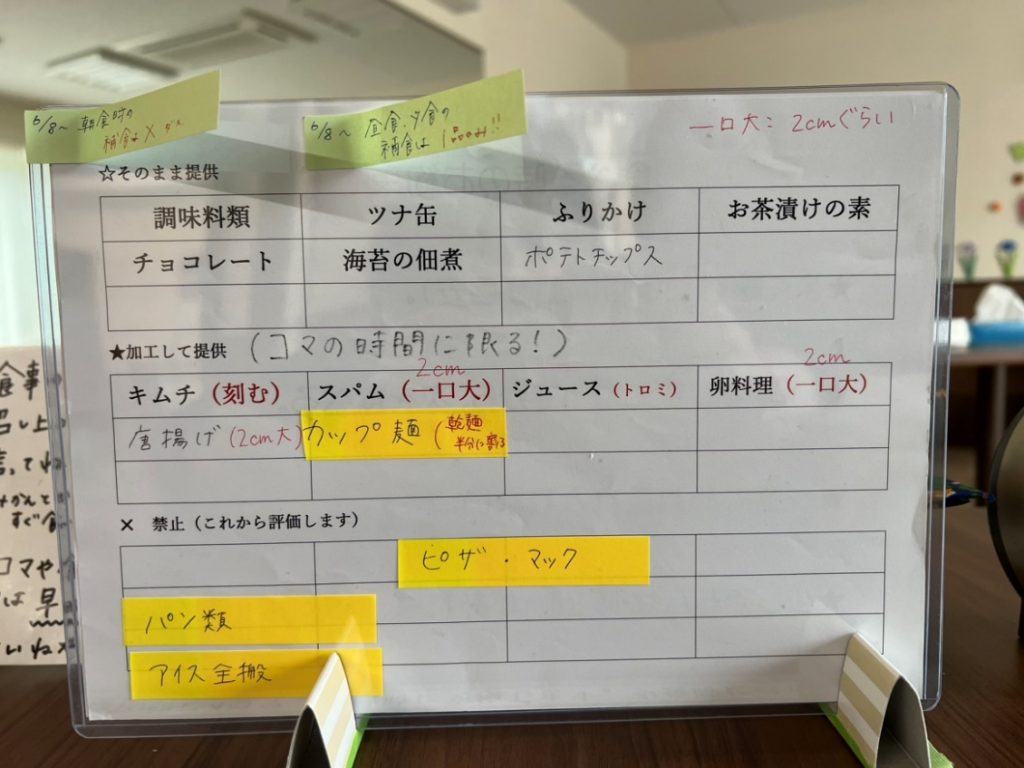 6/8～ 朝食時の
補食は×
6/8～ 昼食、夕食の
補食は1品のみ!!
一口大：2cmぐらい
☆そのまま提供
調味料類 ツナ缶 ふりかけ お茶漬けの素
チョコレート 海苔の佃煮 ポテトチップス
★加工して提供 (コマの時間に限る!)
2cm 2cm
キムチ（刻む） スパム（一口大） ジュース（トロミ） 卵料理（一口大）
唐揚げ(2cm大) カップ麺(乾麺
半分に割る
× 禁止（これから評価します）
ピザ・マック
パン類
アイス全搬
食事
召し上
すぐ食
コマや
は早
いね